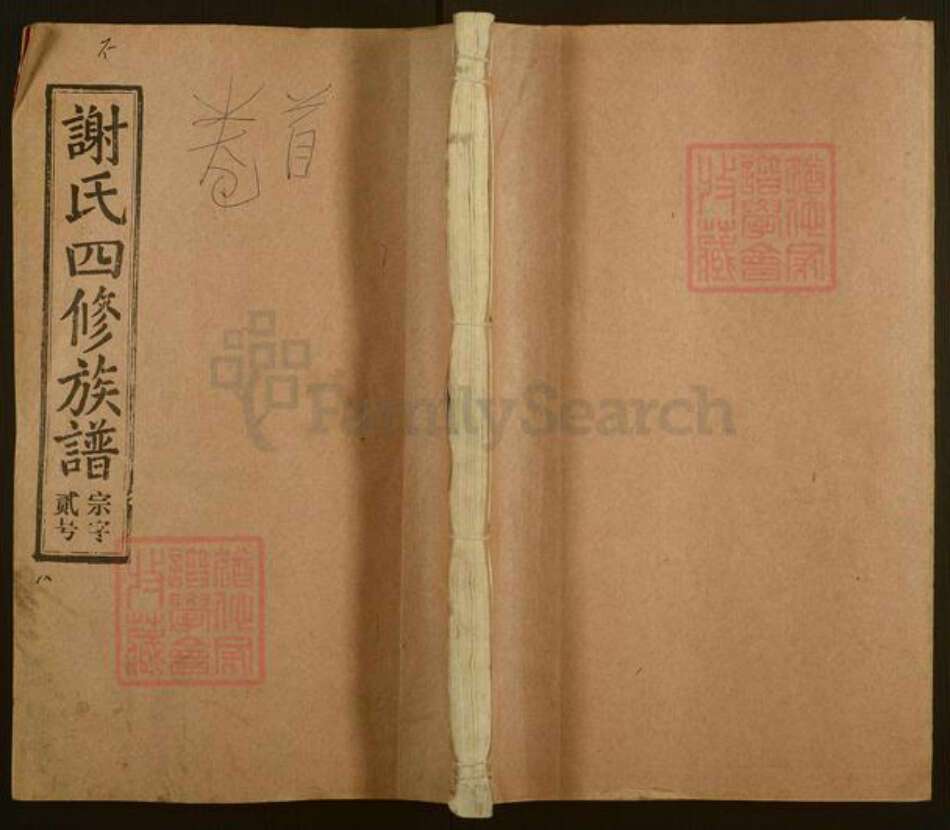 謝氏四修族譜
宗字
貳号
卷首
FamilySearch
猶他家
譜學會
收藏
猶他家
譜學會
收藏